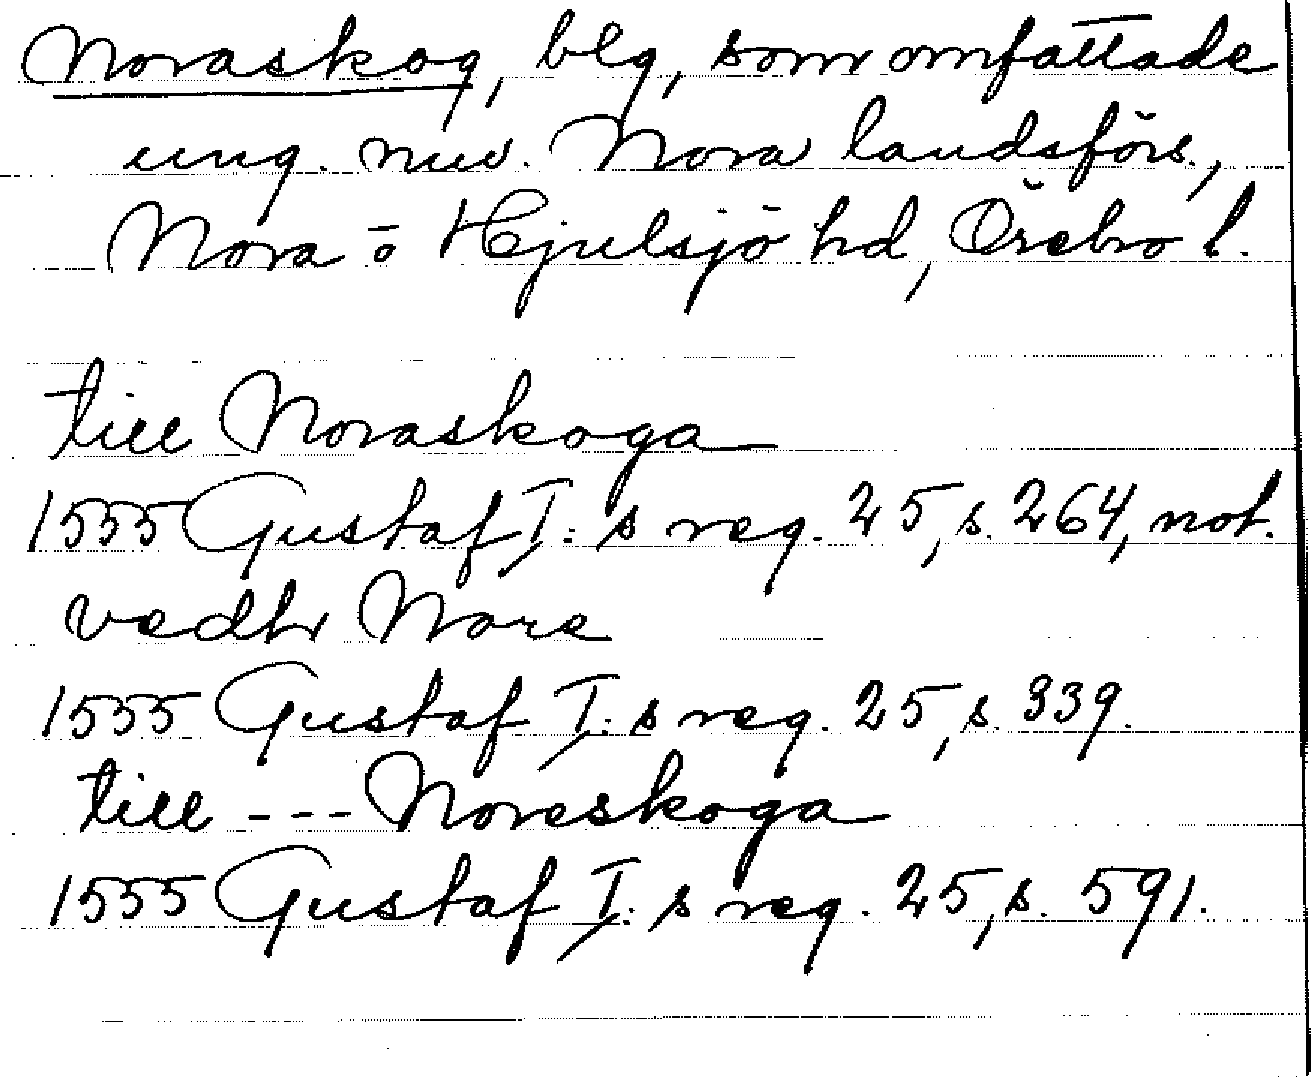 Noraskog, blg, som omfattade
ung. nuv. Nora landsförs.,
Nora o Hjulsjö hd, Örebro l.
till Noraskoga
1555 Gustaf I:s reg. 25, s. 264, not.
vedh Nore
1555 Gustaf I:s reg. 25, s. 339.
till --- Noreskoga
1555 Gustaf I:s reg. 25, s. 591.